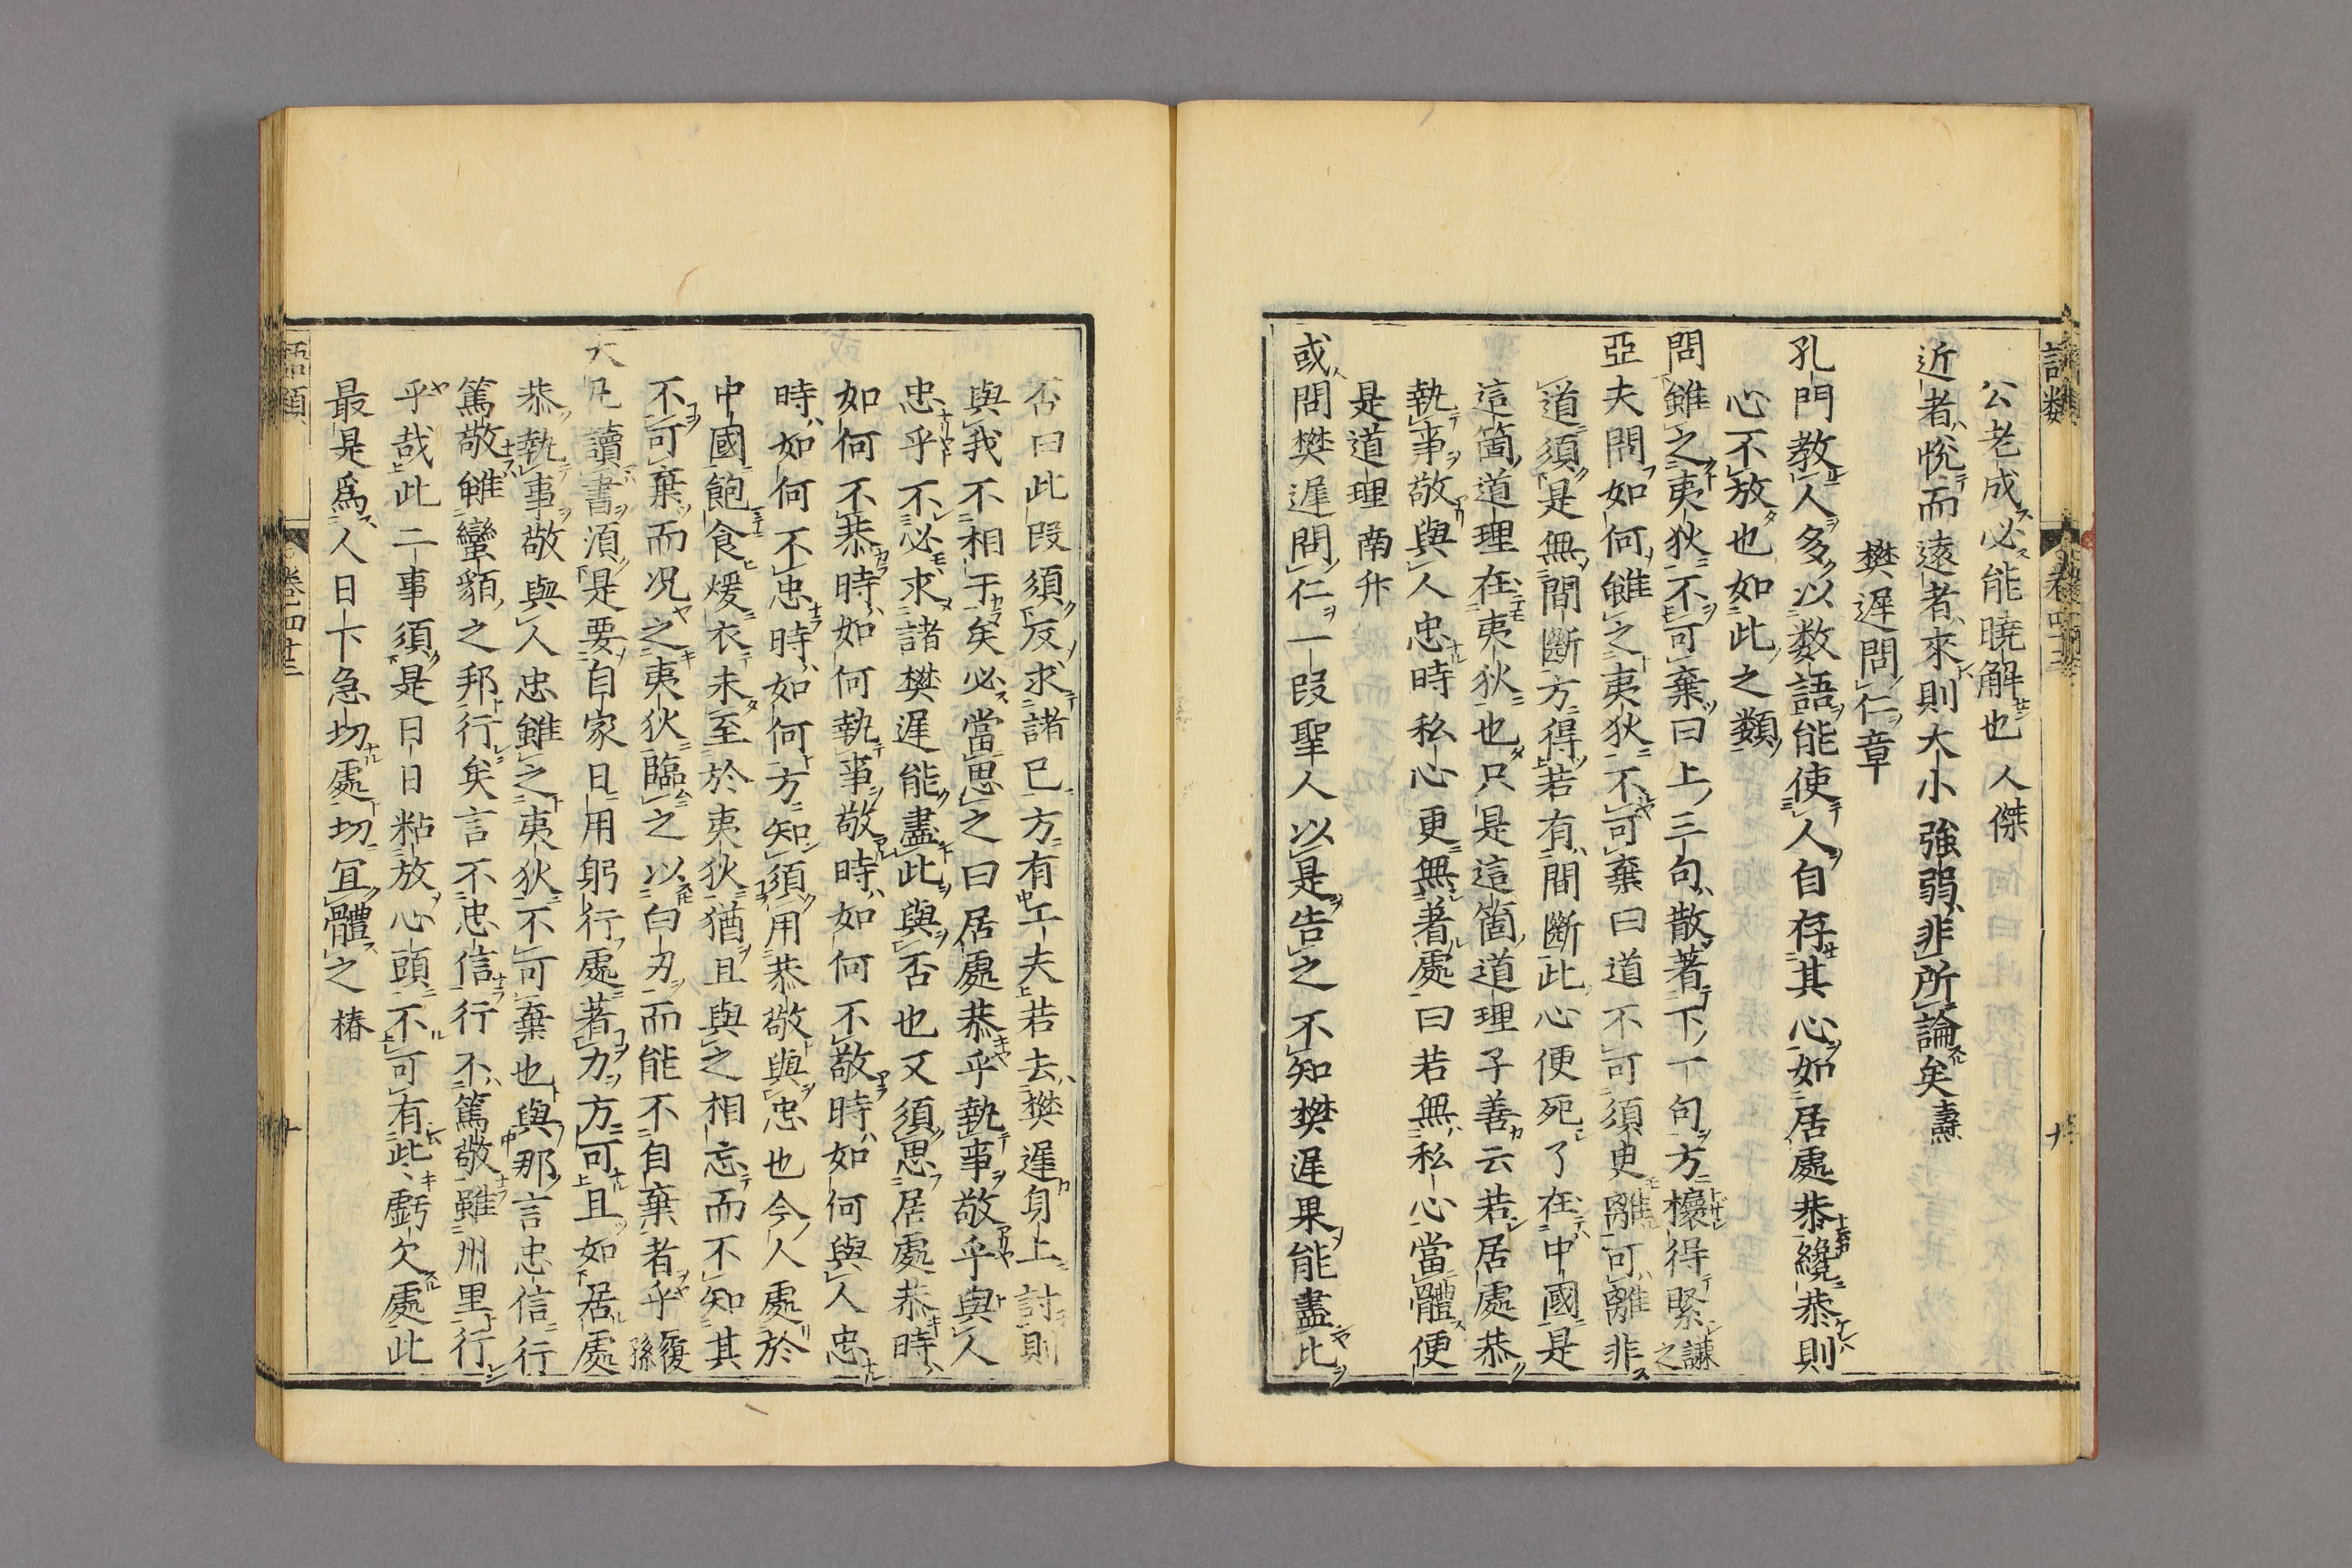 公老成必能曉解也 人傑
近者悅而遠者來則大小強弱非所論矣 燾
樊遲問仁章
孔門教人多以数語能使人自存其心如居處恭纔恭則
心不放也如此之類
問雖之夷狄不可棄曰上三句散著下一句方欀得緊 謙之
亞夫問如何雖之夷狄不可棄曰道不可須臾離可離非
道須是無間斷方得若有間斷此心便死了在中國是
這箇道理在夷狄也只是這箇道理子善云若居處恭
執事敬與人忠時私心更無著處曰若無私心當體便
是道理 南升
或問樊遲問仁一段聖人以是告之不知樊遲果能盡此
否曰此段須反求諸己方有工夫若去樊遲身上討則
與我不相干矣必當思之曰居處恭乎執事敬乎與人
忠乎不必求諸樊遲能盡此與否也又須思居處恭時
如何不恭時如何執事敬時如何不敬時如何與人忠
時如何不忠時如何方知須用恭敬與忠也今人處於
中國飽食煖衣未至於夷狄猶且與之相忘而不知其
不可棄而况之夷狄臨之以白刃而能不自棄者乎 履孫
大凡讀書須是要自家日用躬行處著力方可且如居處
恭執事敬與人忠雖之夷狄不可棄也與那言忠信行
篤敬雖蠻貊之邦行矣言不忠信行不篤敬雖州里行
乎哉此二事須是日日粘放心頭不可有些虧欠處此
最是爲人日下急切處切宜體之 椿
語類
卷四十三